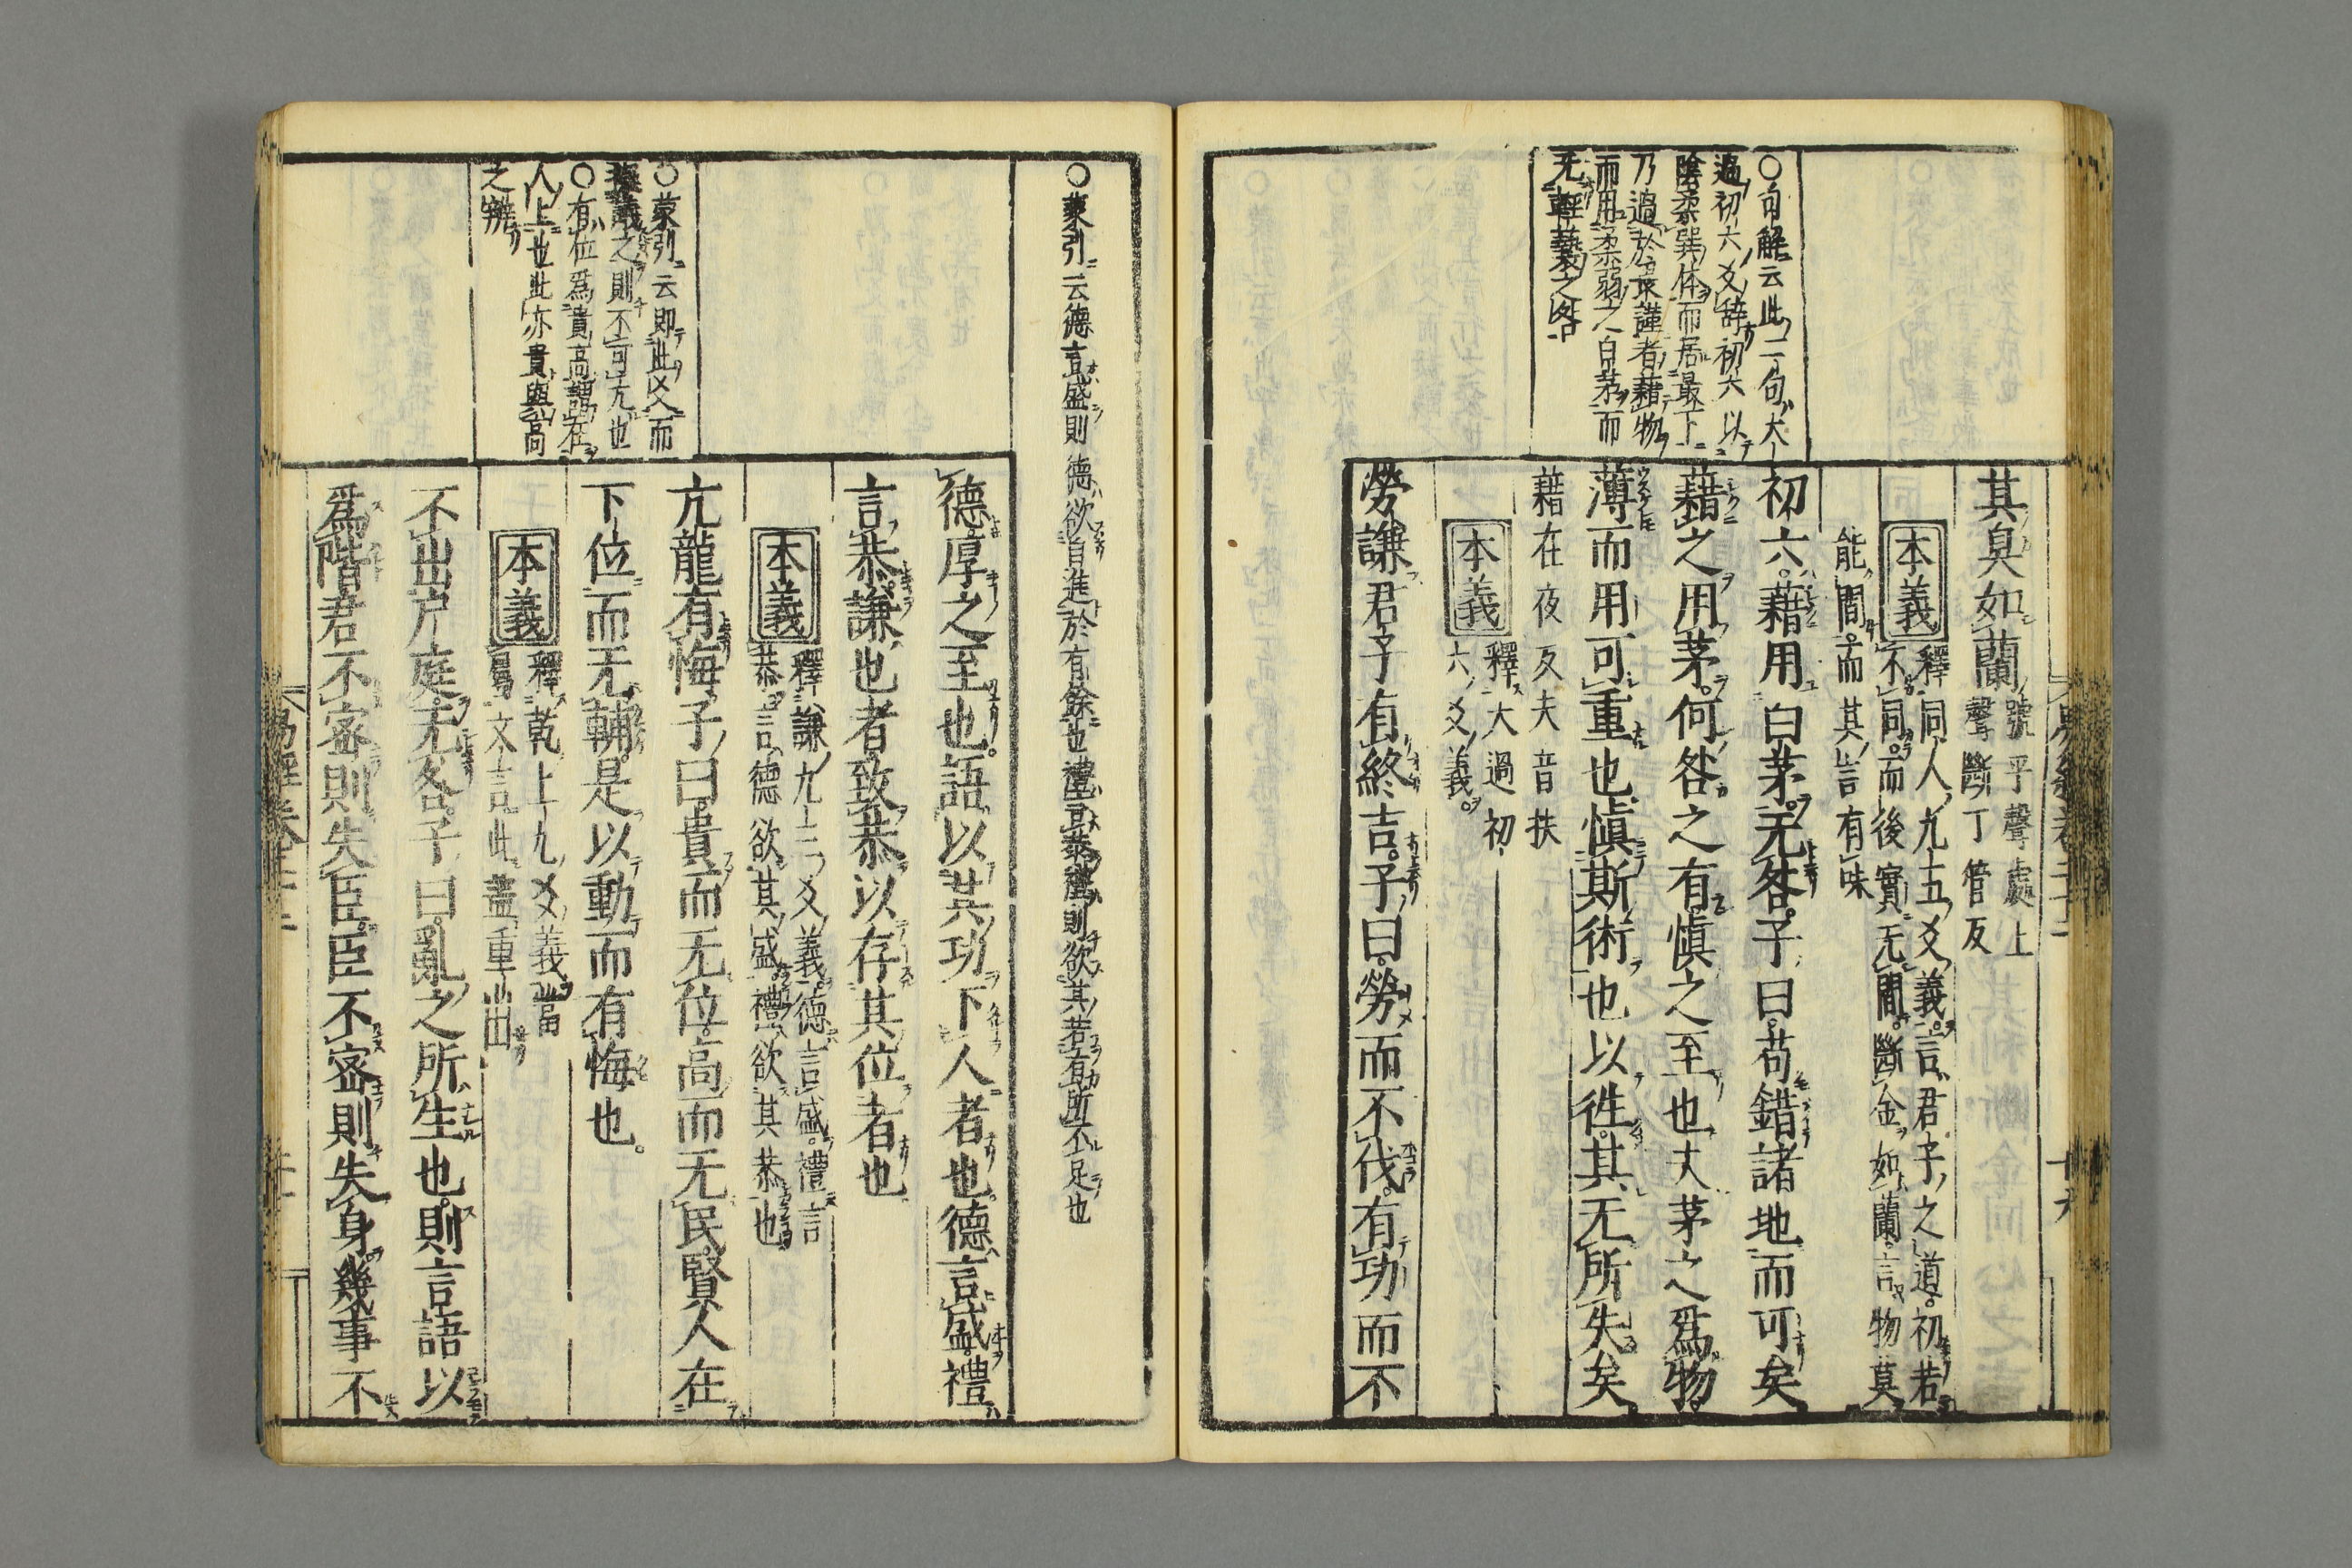 其臭如蘭
號平聲處上
聲斷丁管反
本義
釋同人九五爻義言君子之道初若
不同而後實无間斷金如蘭言物莫
能間而其言有味
〇句解云此二句大
過初六爻辞初六以
陰柔巽体而居最下
乃過於畏謹者藉物
而用柔弱之白茅而
无輕藝之咎
初六藉用白茅无咎子曰苟錯諸地而可矣
藉之用茅何咎之有慎之至也夫茅之為物
薄而用可重也慎斯術也以往其无所失矣
藉在夜反夫音扶
本義
釋大過初
六爻義
勞謙君子有終吉子曰勞而不伐有功而不
〇蒙引云德言盛則德欲自進於有餘也禮言恭禮則欲其若有所不足也
德厚之至也語以其功下人者也德言盛禮
言恭謙也者致恭以存其位者也
本義
釋謙九三爻義德言盛禮言
恭言德欲其盛禮欲其恭也
〇蒙引云即此爻而
擬議之則不可亢也
〇有位爲貴高謂在
人上也此亦貴與高
之辨
亢龍有悔子曰貴而无位高而无民賢人在
下位而无輔是以動而有悔也
本義
釋乾上九爻義當
屬文言此蓋重出
不出戶庭无咎子曰亂之所生也則言語以
爲階君不密則失臣臣不密則失身幾事不